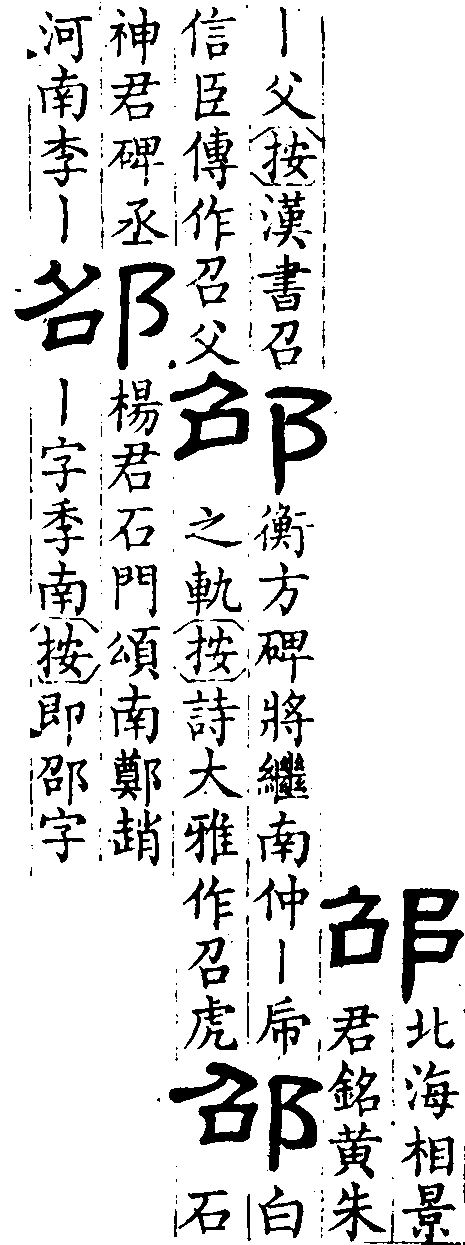 邵
北海相景
君銘黄朱
丨父按漢書召
信臣傳作召父
邵
衡方碑將繼南仲丨帍
之軌按詩大雅作召虎
邵
白
石
神君碑丞
河南李丨
邵
楊君石門頌南鄭趙
丨字季南按即邵字